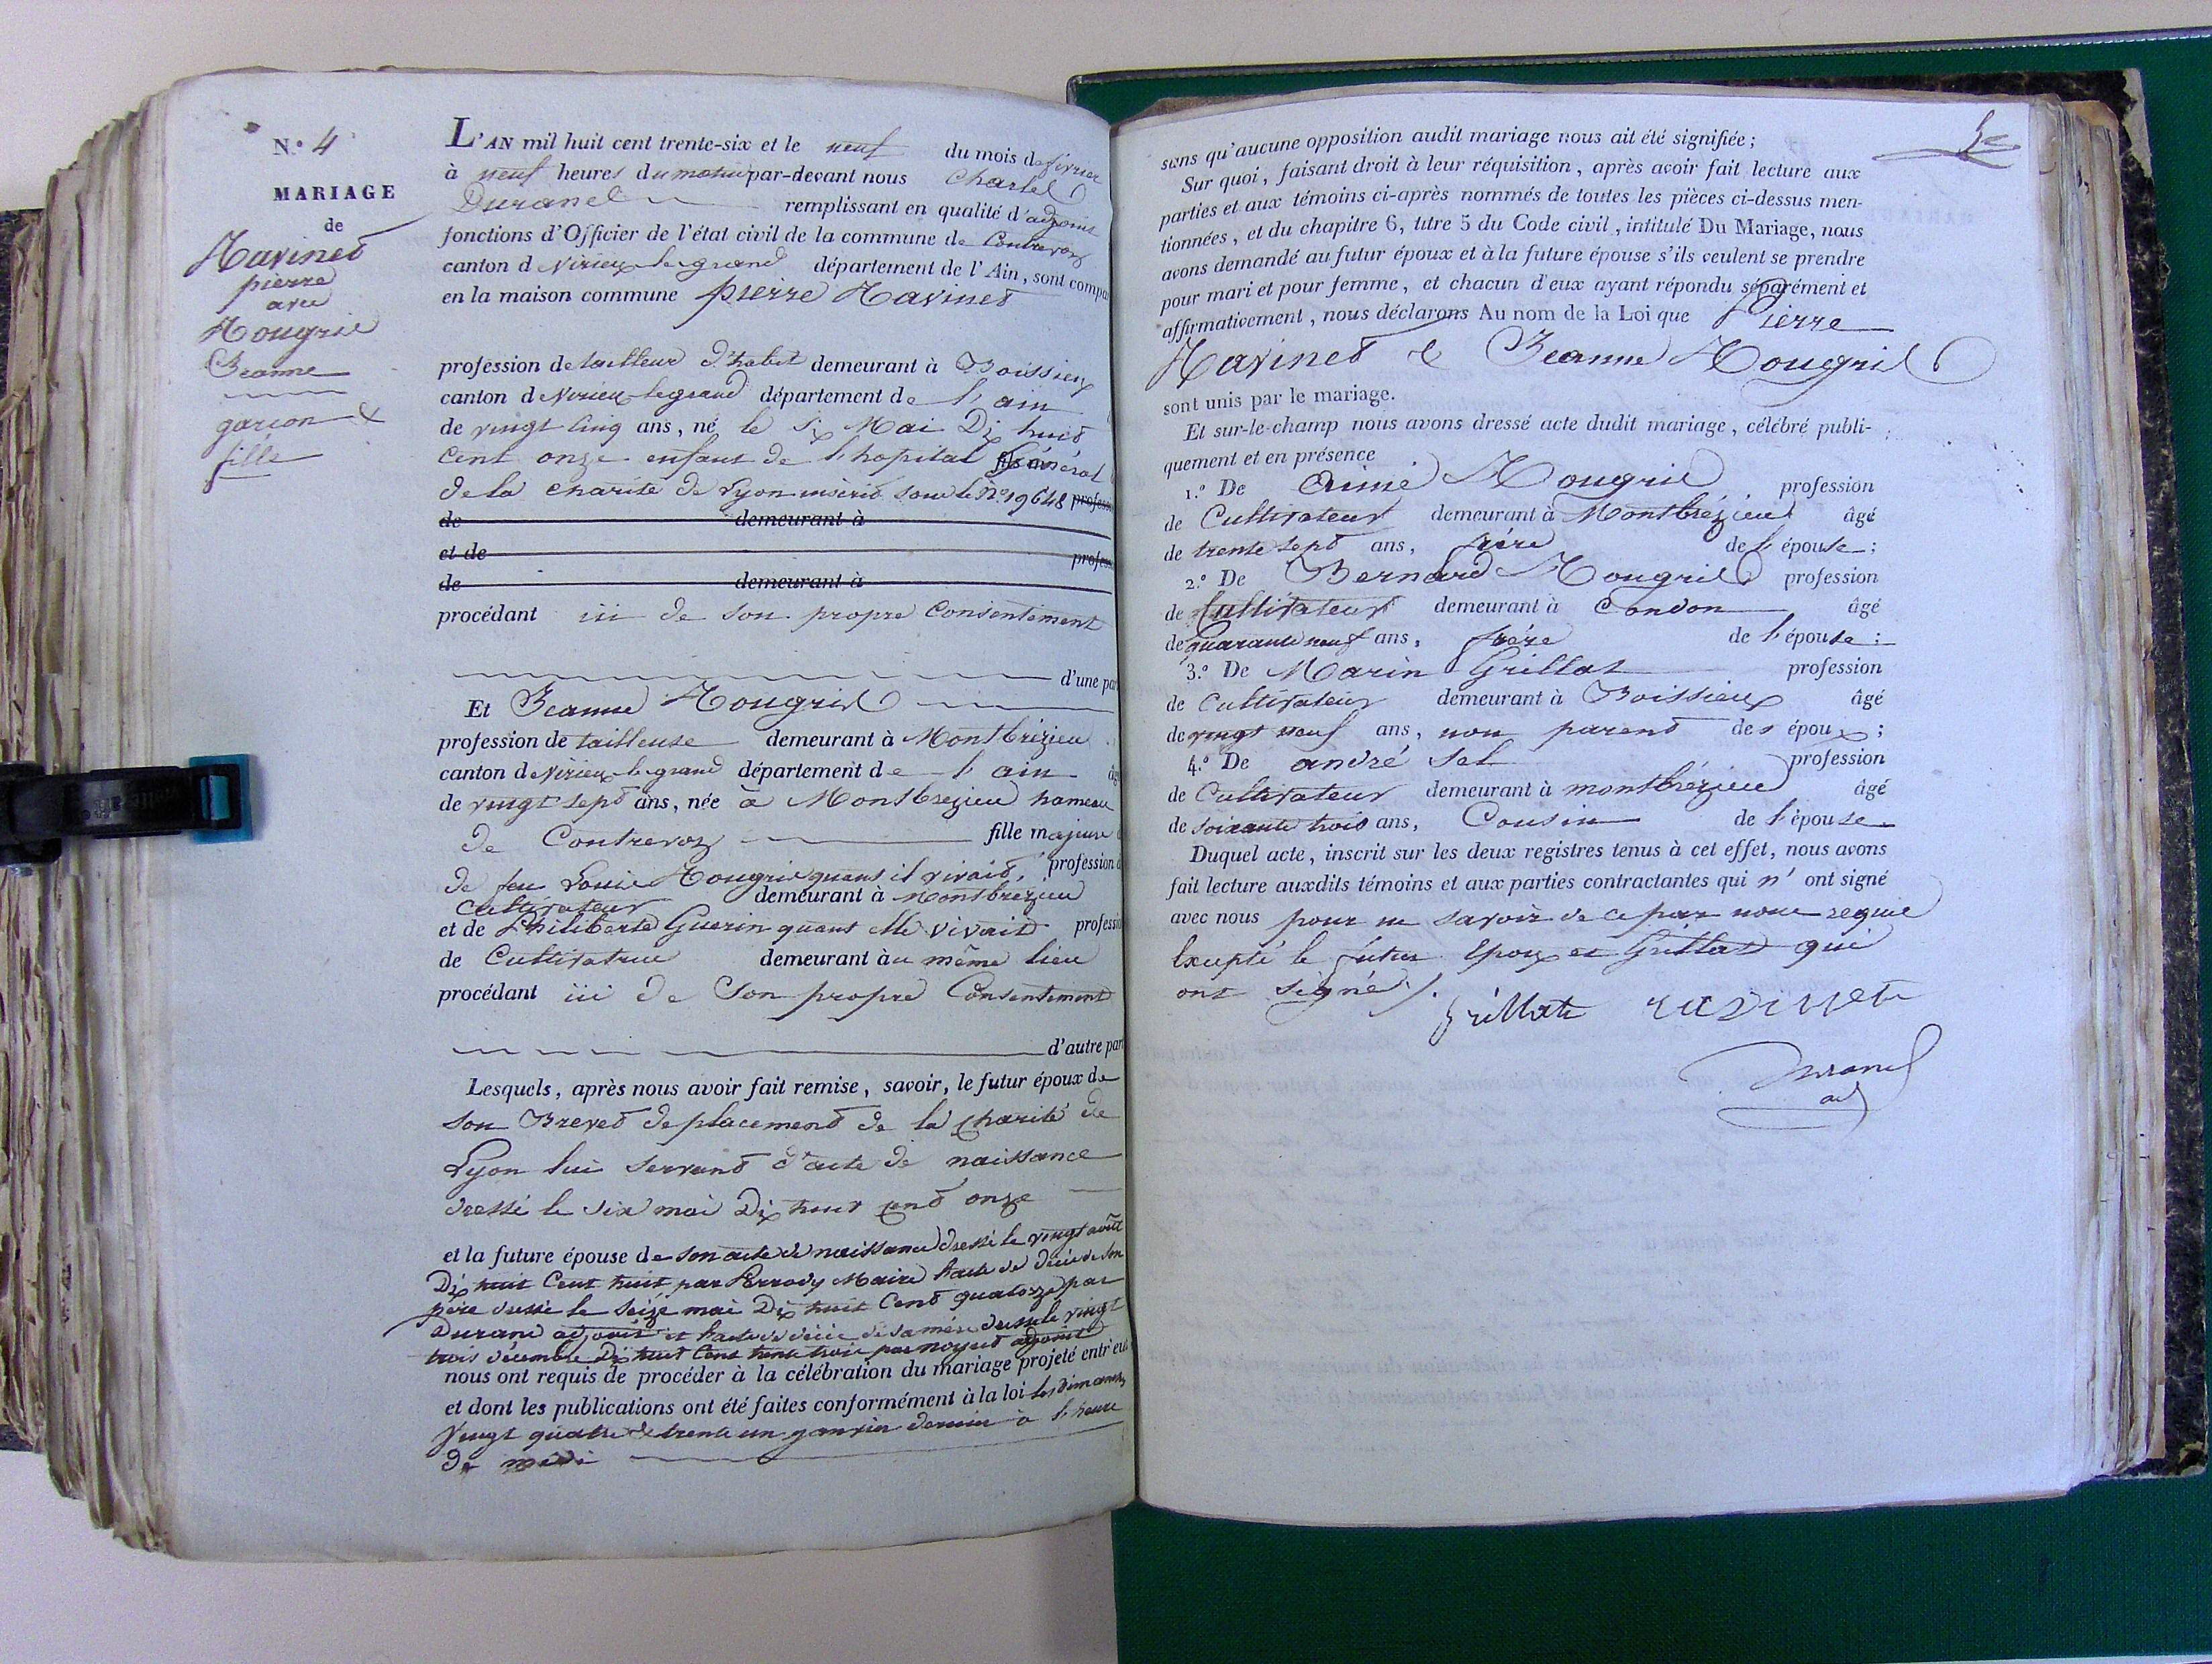 N.° 4
MARIAGE
de
Ravinet
pierre
avec
Rougrie
Jeanne
garcon &
fille
L'AN mil huit cent trente-six et le neuf du mois de fevrier
à neuf heures du matin par-devant nous Charles
Durand remplissant en qualité d'adjoint
fonctions d'Officier de l'état civil de la commune de Contrevoz
canton d Virieux-le-grand département de l'Ain, sont compa
en la maison commune pierre Ravinet
profession de tailleur d'habit demeurant à Boissieux
canton d Virieux-le grand département de l'ain
de vingt cinq ans, né le six Mai Dix huit
cent onze enfant de l'hopital Général
de la charité de Lyon inscrit sous le N.° 19648 profess
de demeurant à
et de profess
de demeurant à
procédant ici de son propre Consentement
d'une par
Et Jeanne Rougrie
profession de tailleuse demeurant à Montbrézieu
canton de Virieux-le-grand département de l'ain âg
de vingt sept ans, née à Montbrezieu hameau
de Contrevoz fille majeure
de feu Louis Rougrie quant il vivait, profession d
Cultivateur demeurant à Montbrezieu
et de Philiberte Guerin quant elle vivait professio
de Cultivatrice demeurant au même lieu
procédant ici de Son propre Consentement
d'autre part
Lesquels, après nous avoir fait remise, savoir, le futur époux de
son Brevet de placement de la charité de
Lyon lui servant d'acte de naissance
dressé le six mai Dix huit cent onze
et la future épouse de son acte de naissance dressé le vingt août
Dix huit Cent huit par Perrody Maire l'acte de décès de son
père dressé le seize mai Dix huit Cent quatorze par
Durand adjoint et l'acte de décès de sa mère dressé le vingt
trois décembre Dix huit Cent trente trois par adjoint
nous ont requis de procéder à la célébration du mariage projeté entr'eux
et dont les publications ont été faites conformément à la loi les dimanches
vingt quatre & trente un janvier dernier à l'heure
de midi
sans qu'aucune opposition audit mariage nous ait été signifiée;
Sur quoi, faisant droit à leur réquisition, après avoir fait lecture aux
parties et aux témoins ci-après nommés de toutes les pièces ci-dessus men-
tionnées, et du chapitre 6, titre 5 du Code civil, intitulé Du Mariage, nous
avons demandé au futur époux et à la future épouse s'ils veulent se prendre
pour mari et pour femme, et chacun d'eux ayant répondu séparément et
affirmativement, nous déclarons Au nom de la Loi que Pierre
Ravinet & Jeanne Rougrie
sont unis par le mariage.
Et sur-le-champ nous avons dressé acte dudit mariage, célébré publi-
quement et en présence
1.° De Aimé Rougrie profession
de Cultivateur demeurant à Montbrézieu âgé
de trente sept ans, frère de l'épouse;
2.° De Bernard Rougrie profession
de Cultivateur demeurant à Condon âgé
de quarante neuf ans, frère de l'épouse:
3.° De Marin Grillat profession
de Cultivateur demeurant à Boissieux âgé
de vingt neuf ans, non parent des époux;
4.° De andré Sel profession
de Cultivateur demeurant à montbrézieu âgé
de soixante trois ans, Cousin de l'épouse
Duquel acte, inscrit sur les deux registres tenus à cet effet, nous avons
fait lecture auxdits témoins et aux parties contractantes qui n'ont signé
avec nous pour ne savoir de ce par nous requie
Excepté le futur Epoux et Grillat qui
ont signé /.
Grillat ravinet
Durand
adj